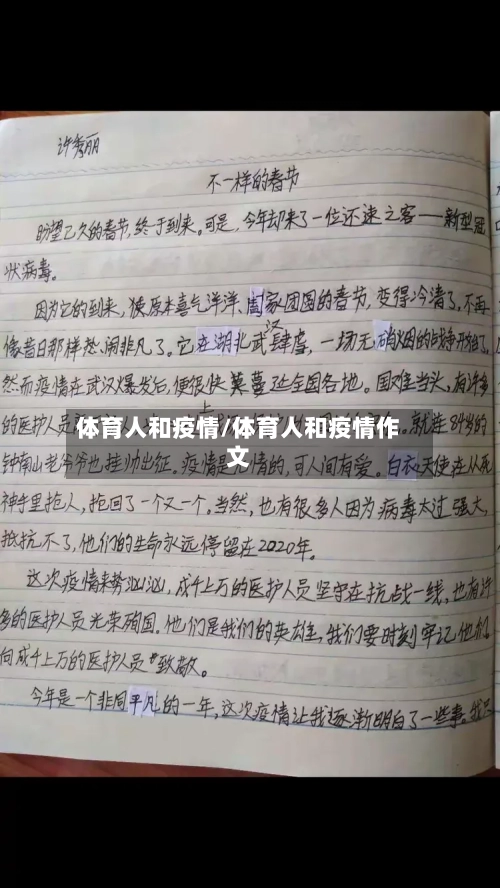 许秀丽
不一样的春节
盼望已久的春节,终于到来。可是,今年却来了一位不速之客——新型冠
状病毒。
因为它的到来,使原本喜气洋洋、阖家团圆的春节,变得冷清了,不再
像昔日那样热闹非凡了。它在湖北武汉肆虐,一场无硝烟的战争开始了。
然而疫情在武汉爆发后,便很快蔓延全国各地。国难当头,有许多
的医护人员
体育人和疫情/体育人和疫情作
文
就连84岁的
钟南山老爷爷也挂帅出征。疫情是无情的,可人间有爱。白衣天使在从死
神手里抢人,抢回了一个又一个。当然,也有很多人因为病毒太过强大,
抵抗不了,他们的生命永远停留在2020年。
这次疫情来势汹汹,成千上万的医护人员坚守在抗战一线,也有许
多的医护人员光荣殉国。他们是我们的英雄,我们要时刻牢记他们,
向成千上万的医护人员致敬。
今年是一个非同平凡的一年,这次疫情让我逐渐明白了一些事。我